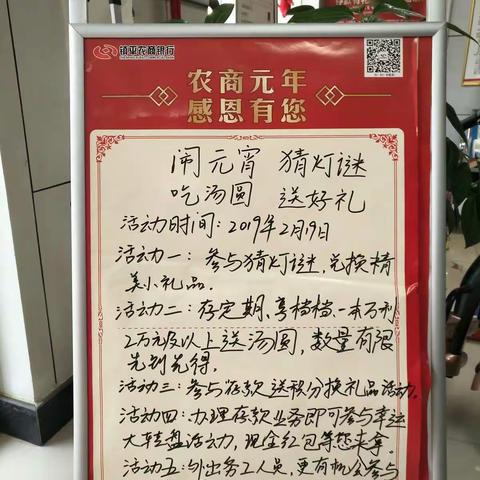 镇平农商银行
农商元年
感恩有您
闹元宵 猜灯谜
吃汤圆 送好礼
活动时间：2019年2月19日
活动一：参与猜灯谜，兑换精
美小礼品。
活动二：存定期、享档档、一本万利
2万元及以上送汤圆，数量有限
先到先得．
活动三：参与存款送积分换礼品活动．
活动四：办理存款业务即可参与幸运
大转盘活动，现金红包等您来拿．
活动五：外出务工人员，更有机会参与